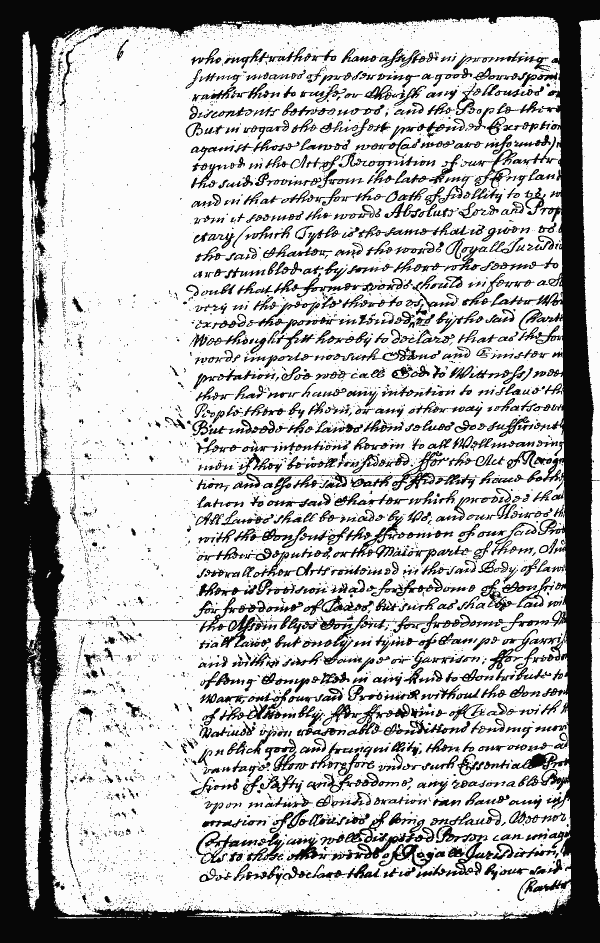 6
who ought rather to have assisted in promoting a
fitting meanes of preserving a good Correspon
raither then to raise, or Cherish any Jellousies or
discontents betweene us, and the People there
But in regard the Chiefest pretended Exception
against those lawes were (as wee are informed)
teyned in the Act of Recognition of our Chartter
the said Province from the late King of England
and in that other for the Oath of fidellity to us, w
rein it seemes the words Absolute Lord and Prop
etary (which Tytle is the same that is given us b
the said Charter, and the words Royall Jurisdic
are stumbled at, by some there who seeme to
doubt that the former words should inferre a Sl
very in the people there to us, and the latter Wor
exceede the power intended us by the said Chart
Wee thought fitt hereby to declare, that as the for
words importe noe such Odious and Sinister in
pretation, Soe wee call God to Wittness) wee
ther had nor have any intention to inslave the
People there by them, or any other way whatsoeve
But indeede the lawes themselves doe sufficient
clere our intentions herein to all Well meaneing
men if they be well considered. ffor the Act of Recogn
tion, and also the said Oath of ffidellity have bothe
lation to our said Charter which provides that
All Lawes shall be made by Us, and our Heires
with the Consent of the ffreemen of our said Prov
or their Deputies, or the Maior parte of them, And
severall other Acts conteined in the said Body of lawe
there is Provision made for freedome of Conscien
for freedome of Taxes, but such as shalbe laid wi
the Assemblyes Consent, for freedome from Ma
tiall lawe, but onely in tyme of Campe or Garris
and within such Campe or Garrison; ffor freedo
of being Compelled in any kind to Contribute to
Warr, out of our said Province without the Consent
of the Assembly; ffor ffreedome of trade with
Natives upon reasonable Conditions tending more
publick good and tranquillity, then to our owne ad
vantage. How therefore under such Essentiall
sions of Safty and freedome, any reasonable
upon mature Consideration can have any
occasion of Jellousies of being enslaved, Wee nor
Certainely, any well disposed Person can imag
As to those other words of Royall Jurisdiction,
Doe hereby declare that it is intended by our said
Chartt